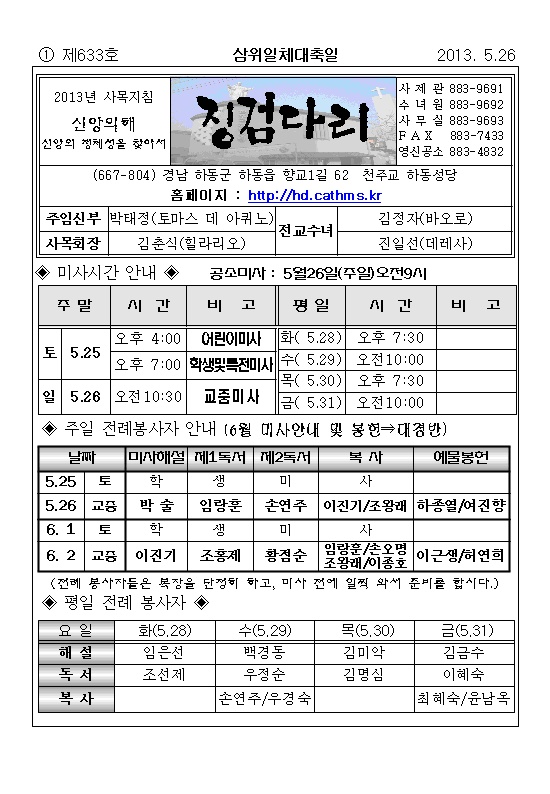 ① 제633호 삼위일체대축일 2013. 5.26
2013년 사목지침
신앙의해
신앙의 정체성을 찾아서
징검다리
사 제 관 883-9691
수 녀 원 883-9692
사 무 실 883-9693
F A X 883-7433
영신공소 883-4832
(667-804) 경남 하동군 하동읍 향교1길 62 천주교 하동성당
홈페이지 : http://hd.cathms.kr
주임신부 박태정(토마스 데 아퀴노) 전교수녀 김정자(바오로)
사목회장 김춘식(힐라리오) 진일선(데레사)
◈ 미사시간 안내 ◈ 공소미사 : 5월26일(주일)오전9시
주 말 시 간 비 고 평 일 시 간 비 고
토 5.25 오후 4:00 어린이미사 화( 5.28) 오후 7:30
오후 7:00 학생및특전미사 수( 5.29) 오전10:00
일 5.26 오전10:30 교중미사 목( 5.30) 오후 7:30
금( 5.31) 오전10:00
◈ 주일 전례봉사자 안내 (6월 미사안내 및 봉헌⇒대경반)
날짜 미사해설 제1독서 제2독서 복 사 예물봉헌
5.25 토 학 생 미 사
5.26 교중 박 술 임랑훈 손연주 이진기/조왕래 하종열/여진향
6. 1 토 학 생 미 사
6. 2 교중 이진기 조홍제 황점순 임랑훈/손오명 조왕래/이종호 이근생/허연희
(전례 봉사자들은 복장을 단정히 하고, 미사 전에 일찍 와서 준비를 합시다.)
◈ 평일 전례 봉사자 ◈
요 일 화(5.28) 수(5.29) 목(5.30) 금(5.31)
해 설 임은선 백경동 김미악 김금수
독 서 조선제 우정순 김명심 이혜숙
복 사 손연주/우경숙 최혜숙/윤남옥